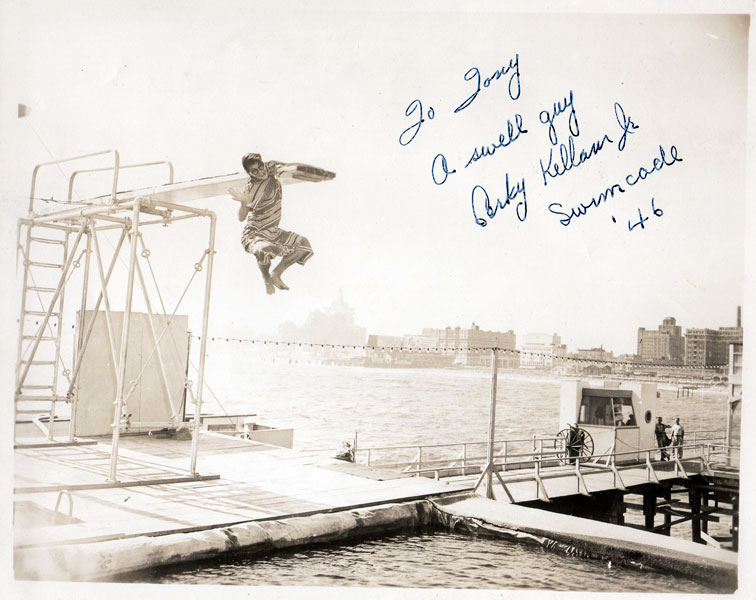 To Tony
A swell guy
Corky Kellam Jr
Swimcade
'46